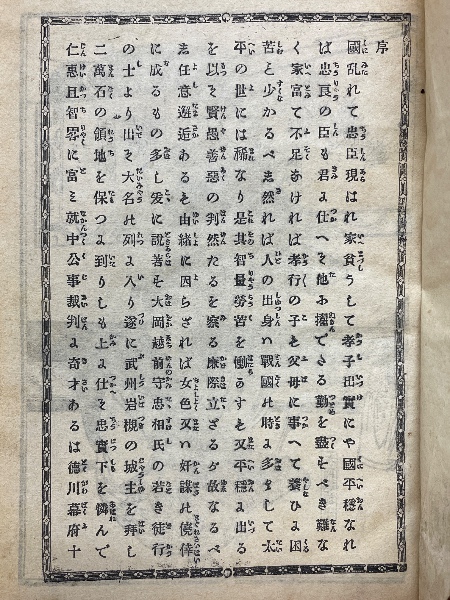 序
國亂れて忠臣現はれ家貧うして孝子出實にや國平穩なれ
ば忠良の臣も君に仕へて他に擢できる勤を盡すべき難な
く家富て不足なければ孝行の子も父母に事へて養ひに困
苦も少かるべし然れば人の出身ハ戰國の時に多くして太
平の世には稀なり是其智量勞苦を働らすも又平穩に出る
を以て賢愚善惡の判然たるを察る廉際立ざる故なるべ
し任意邂逅あるも由緒に因らざれば女色又ハ奸謀の僥倖
に成るもの多し爰に説著も大岡越前守忠相氏の若き徒行
の士より出て大名の列に入り遂に武州岩槻の城主を拜し
二萬石の領地を保つに到りしも上に仕て忠實下を憐んで
仁惠且智畧に富ミ就中公事裁判に奇才あるは德川幕府十